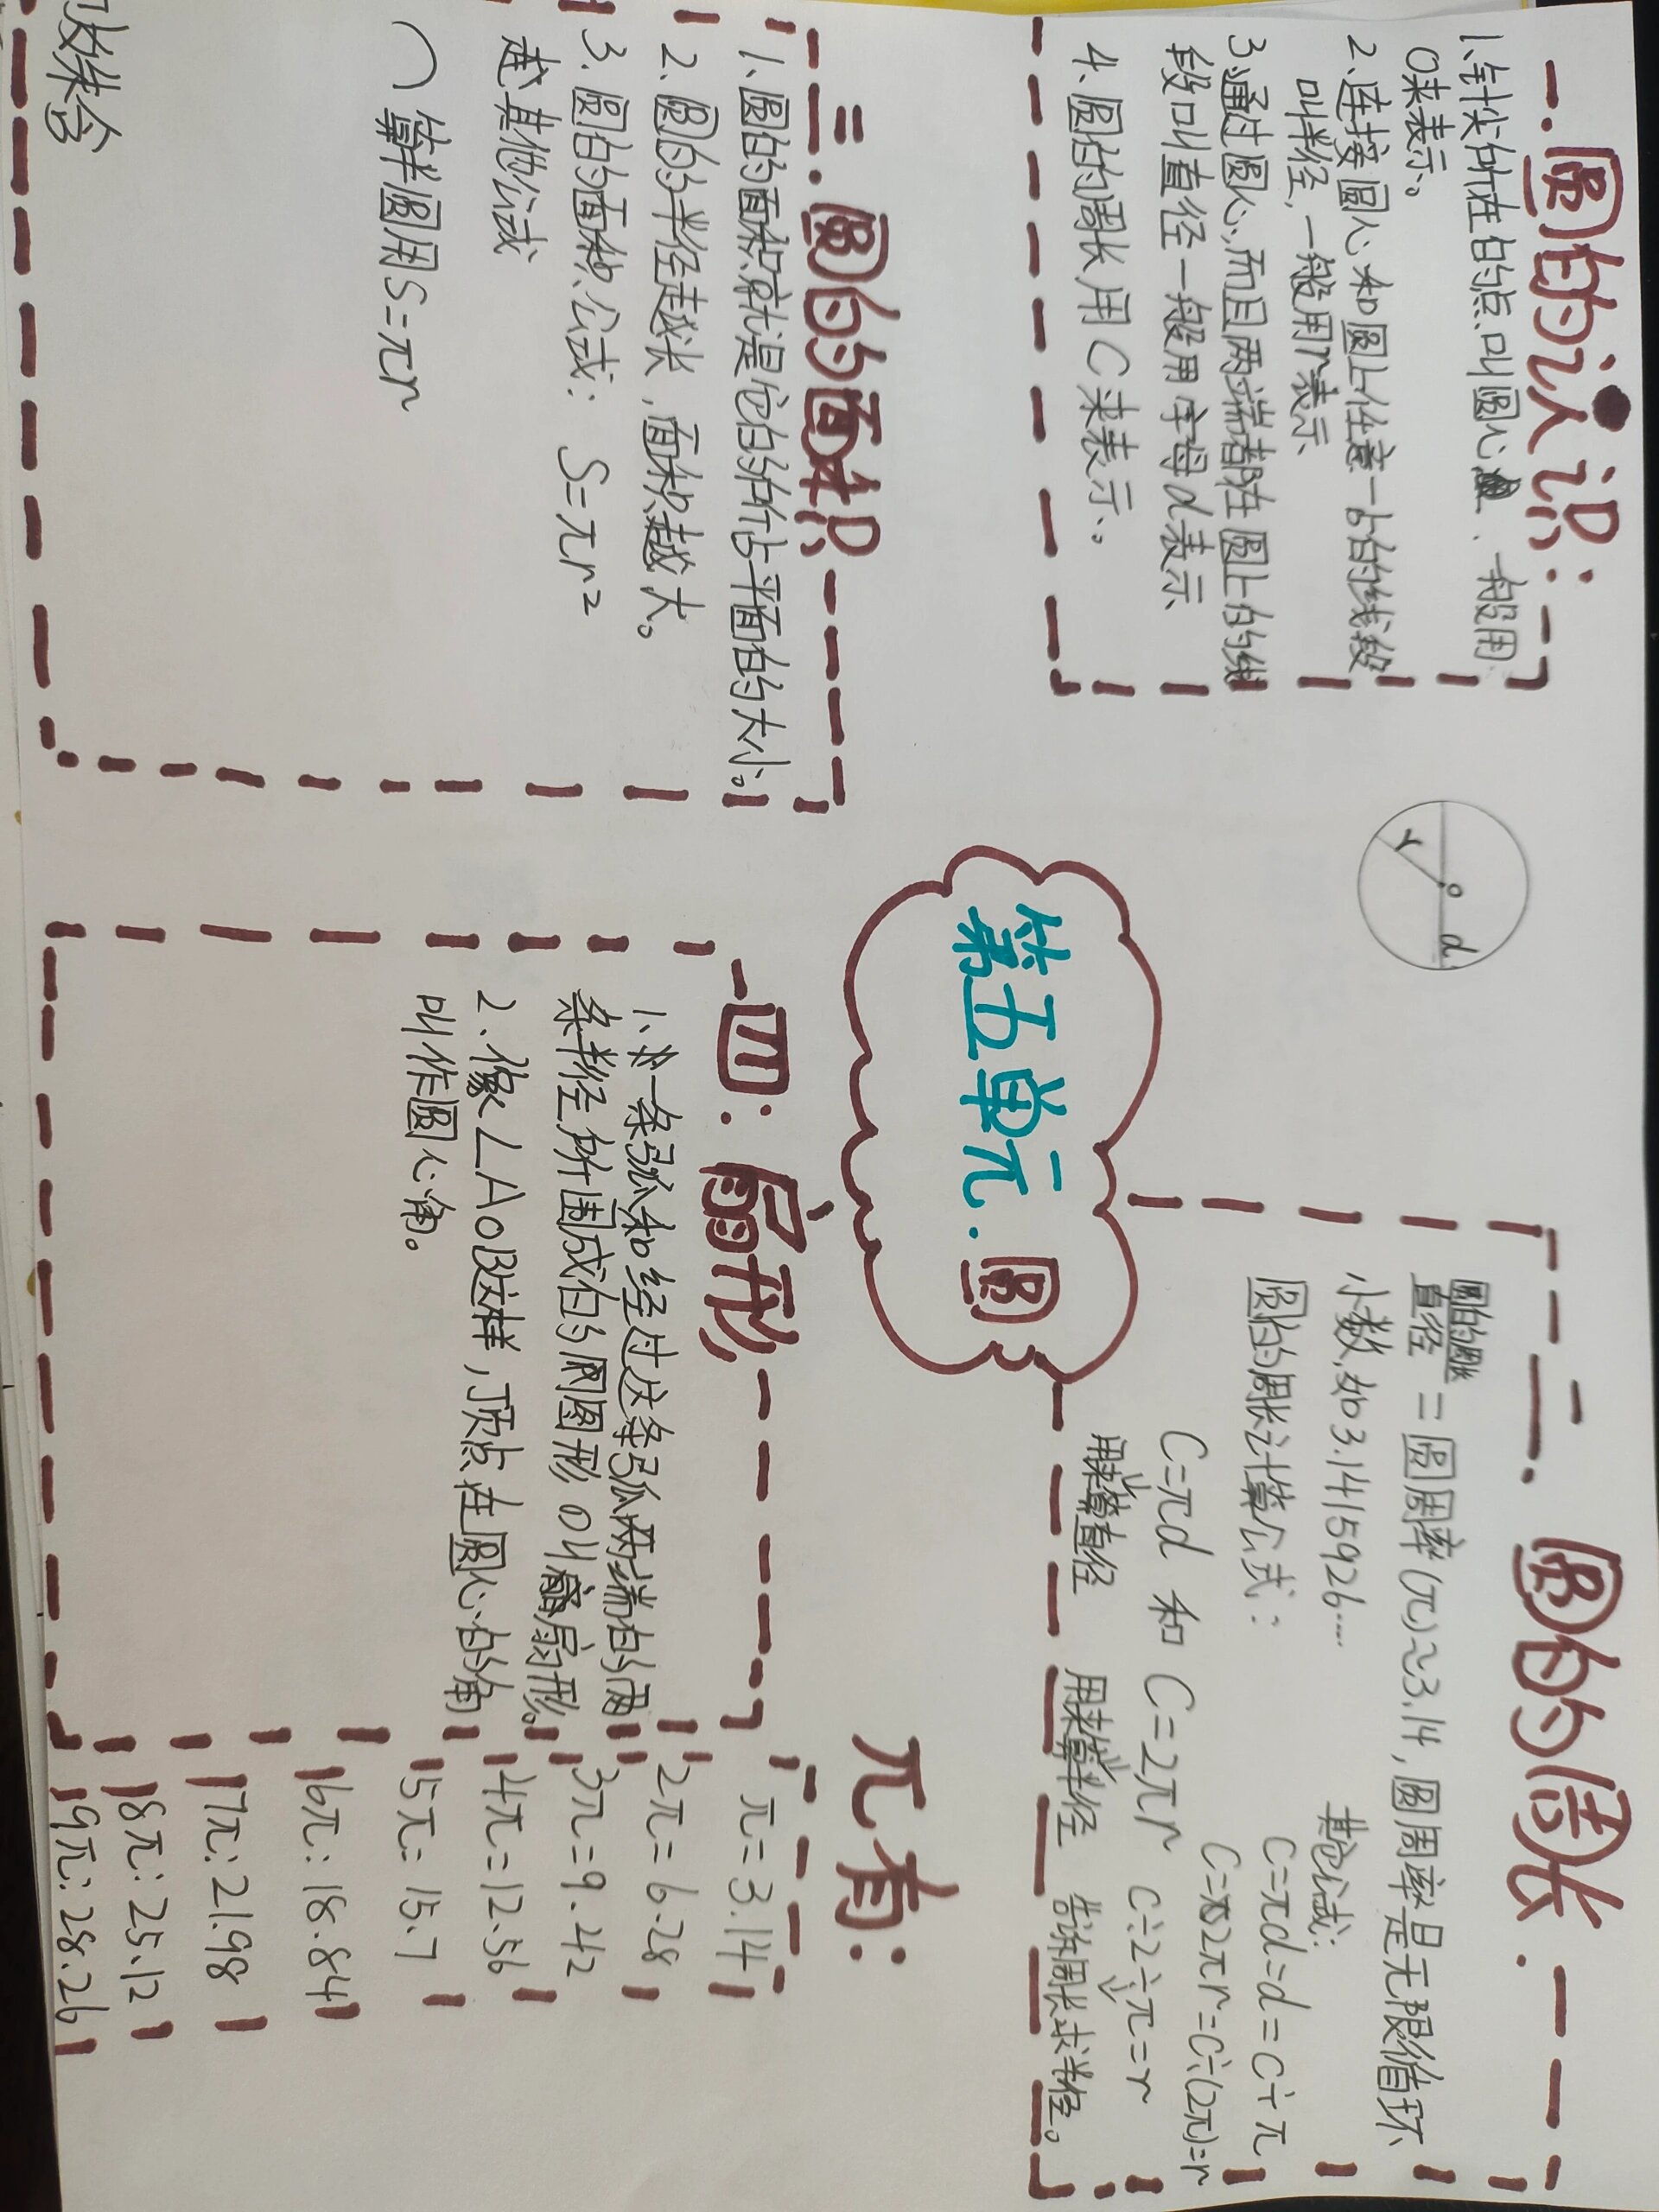 第五单元.圆
一.圆的认识:
1.针尖所在的点叫圆心、一般用
O来表示。
2.连接圆心和圆上任意一占的线段
叫半径,一般用r表示
3.通过圆心,而且两端都在圆上的线
段叫直径一般用字母d表示
4.圆的周长用C来表示。
r
o
d
二.圆的周长.
圆的周长
直径 =圆周率(π)≈3.14,圆周率是无限循环
小数,如3.1415926…
圆的周长计算公式:
C=πd 和 C=2πr
用来算直径 用来算半径
其他公式:
C=πd=d=C÷π
C=2πr=C÷(2π)=r
C÷2÷π=r
告诉周长求半径。
三.圆的面积
1.圆的面积就是它的所占平面的大小。
2.圆的半径越长,面积越大。
3.圆的面积公式: S=πr²
其他公式
算半圆用S=πr
四.扇形
1.一条弧和经过这条弧两端的两
条半径所围成的图形叫扇形。
2.像∠AOB这样,顶点在圆心的角
叫作圆心角。
π有:
π=3.14
2π=6.28
3π=9.42
4π=12.56
5π=15.7
6π:18.84
7π:21.98
8π:25.12
9π:28.26